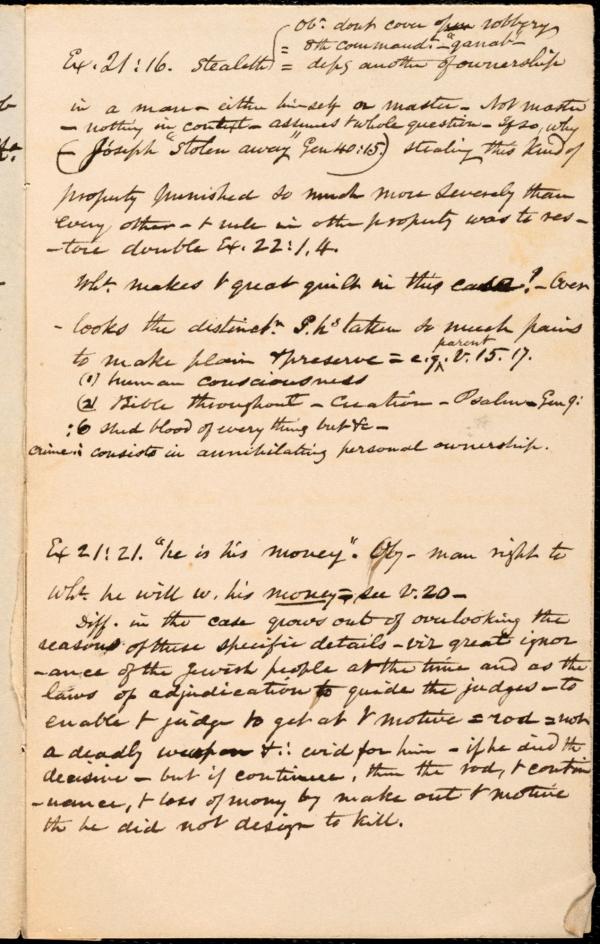 Obn. dont cover open robbery
= 8th command: - "ganab"
Ex. 21:16. Stealeth = depg another of ownership
in a man - either himself or master - Not master
- nothing in context - assumes t whole question - If so, why
(- Joseph "Stolen away" Gen 40:15.) stealing this kind of
property punished so much more severely than
every other - t rule in othr property was to res-
-tore double Ex. 22:1, 4.
Wht. makes t great guilt in this case? - Over
- looks the distinctn. taken so much pains
to make plain & preserve = e.g. parent V. 15. 17.
(1) human consciousness
(2) Bible throughout - Creation - Psalm - Gen 9:
:6 shed blood of every thing but &c -
crime consists in annihilating personal ownership.
Ex 21:21. "he is his money". Obj - man right to
wht. he will w. his money = see V. 20 -
Diff. in the case grows out of overlooking the
reasons of these specific details - viz great ignor
-ance of the Jewish people at the time and as the
laws of adjudication to guide the judges - to
enable t judge to get at t motive = rod = not
a deadly weapon & evid for him - if he died th
decisive - but if continue, then the rod, t contin
-uance, t loss of mony by make out t motive
th he did not design to kill.